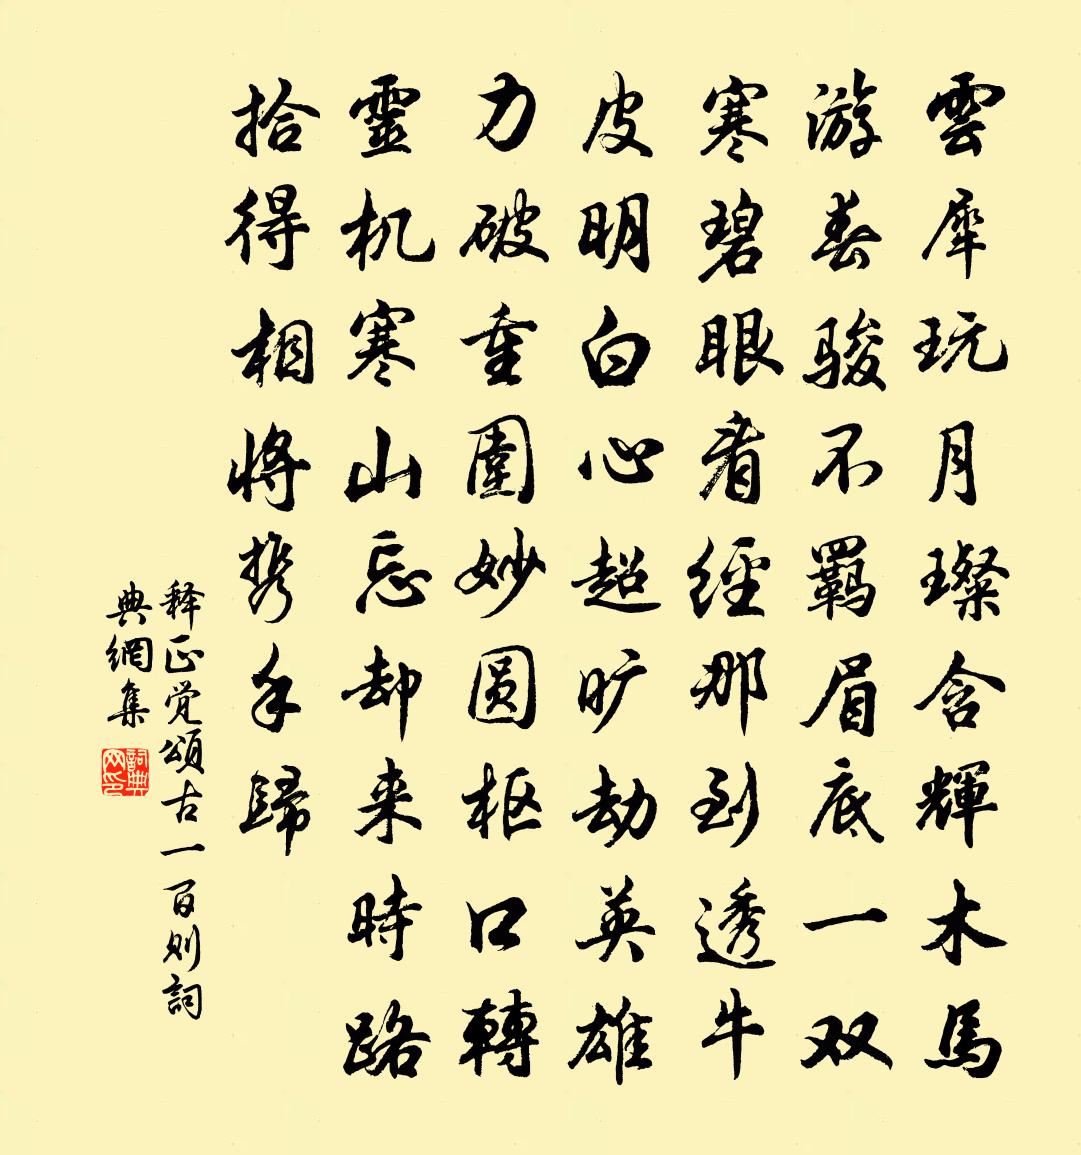 雲犀玩月璨含輝木馬
游春駿不羈眉底一双
寒碧眼看經那到透牛
皮明白心超旷劫英雄
力破重圍妙圆枢口轉
靈机寒山忘却来時路
拾得相将携手歸
释正觉頌古一百则詞
典網集
詞典网印